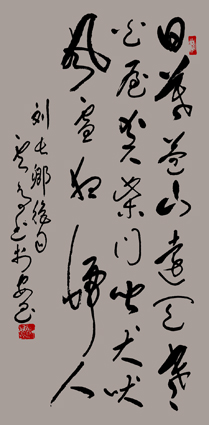 日暮苍山远天寒
白屋贫柴门闻犬吠
风雪夜归人
刘长卿